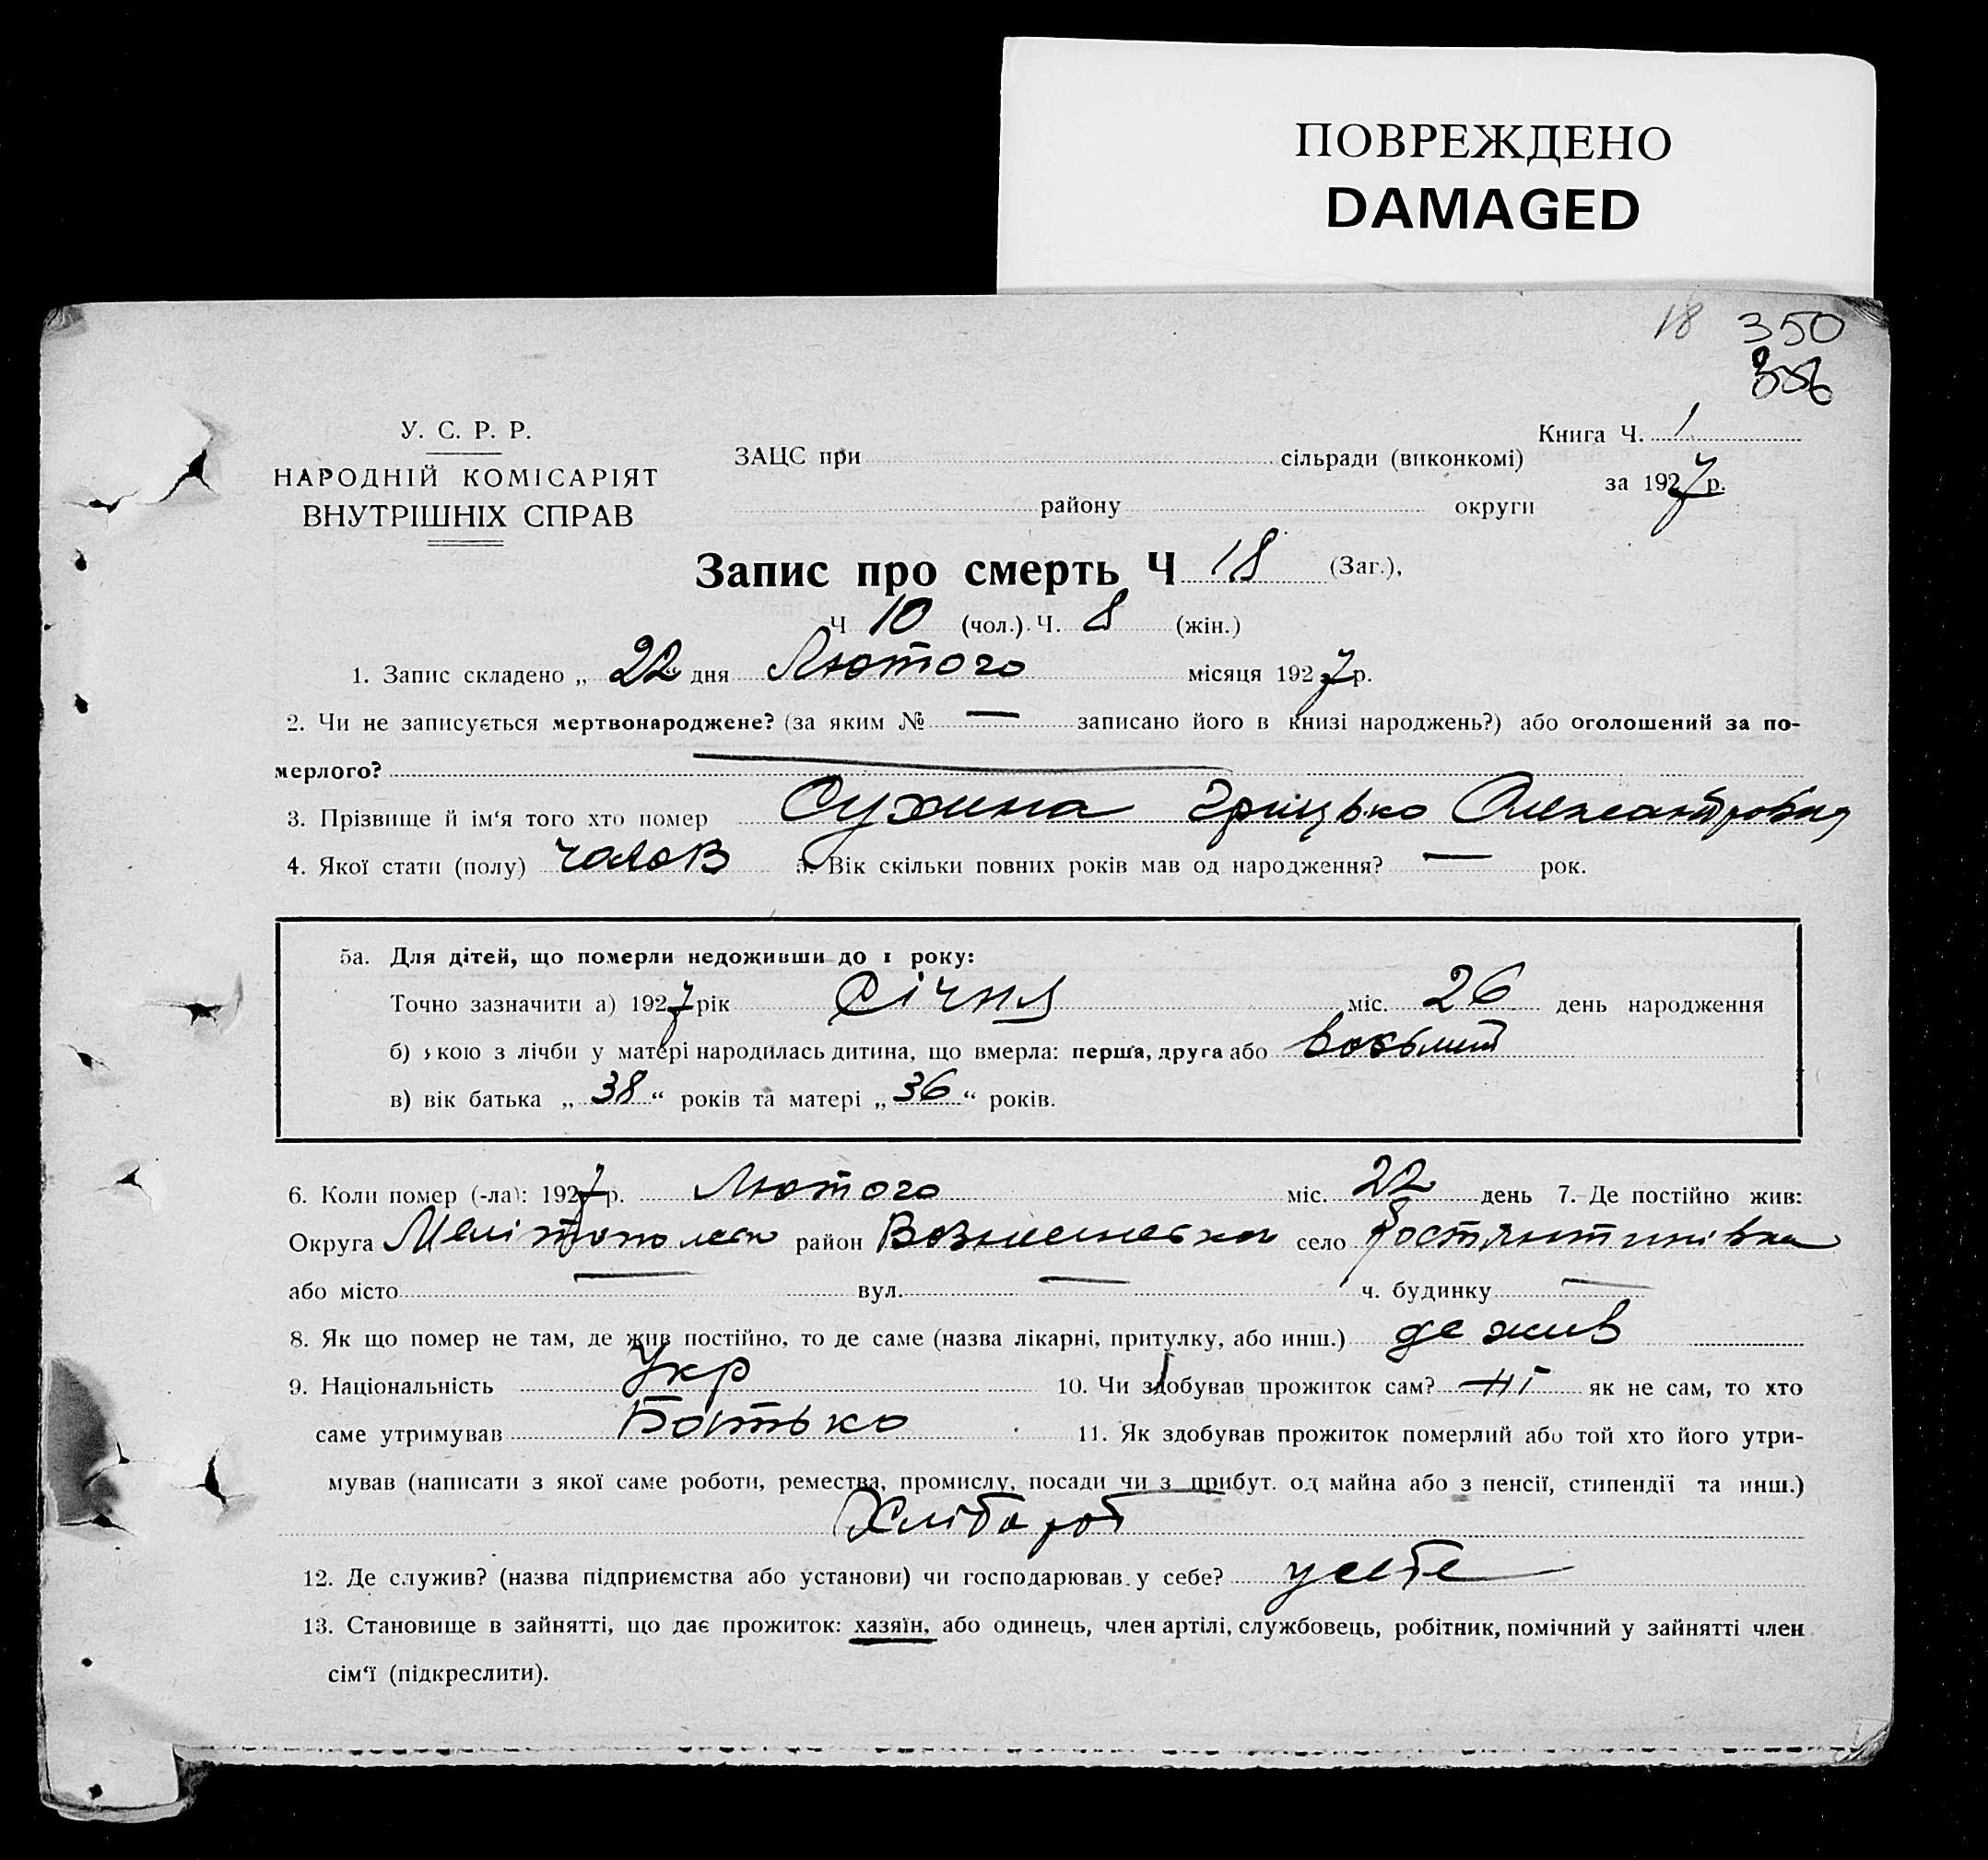 ПОВРЕЖДЕНО
DAMAGED
18 350
У. С. Р. Р.
НАРОДНІЙ КОМІСАРІЯТ
ВНУТРІШНІХ СПРАВ
ЗАЦС при сільради (виконкомі)
району округи
Книга Ч. 1
за 1927 р.
Запис про смерть Ч 18 (Заг.),
Ч 10 (чол.) Ч. 8 (жін.)
1. Запис складено „ 22 “ дня Лютого місяця 1927 р.
2. Чи не записується мертвонароджене? (за яким № — записано його в книзі народжень?) або оголошений за по-
мерлого?
3. Прізвище й ім‘я того хто помер Сухина Грицько Олександрович
4. Якої стати (полу) чолов 5. Вік скільки повних років мав од народження? — рок.
5а. Для дітей, що померли недоживши до 1 року:
Точно зазначити а) 1927 рік Січня міс. 26 день народження
б) якою з лічби у матері народилась дитина, що вмерла: перша, друга або
в) вік батька „ 38 “ років та матері „ 36 “ років.
6. Коли помер (-ла): 1927 р. Лютого міс. 22 день 7. Де постійно жив:
Округа район село
або місто — вул. — ч. будинку —
8. Як що помер не там, де жив постійно, то де саме (назва лікарні, притулку, або инш.) де жив
9. Національність Укр 10. Чи здобував прожиток сам? ні як не сам, то хто
саме утримував Батько 11. Як здобував прожиток померлий або той хто його утри-
мував (написати з якої саме роботи, ремества, промислу, посади чи з прибут. од майна або з пенсії, стипендії та инш.)
Хлібороб
12. Де служив? (назва підприємства або установи) чи господарював у себе? усебе
13. Становище в зайнятті, що дає прожиток: хазяїн, або одинець, член артілі, службовець, робітник, помічний у зайнятті член
сім‘ї (підкреслити).